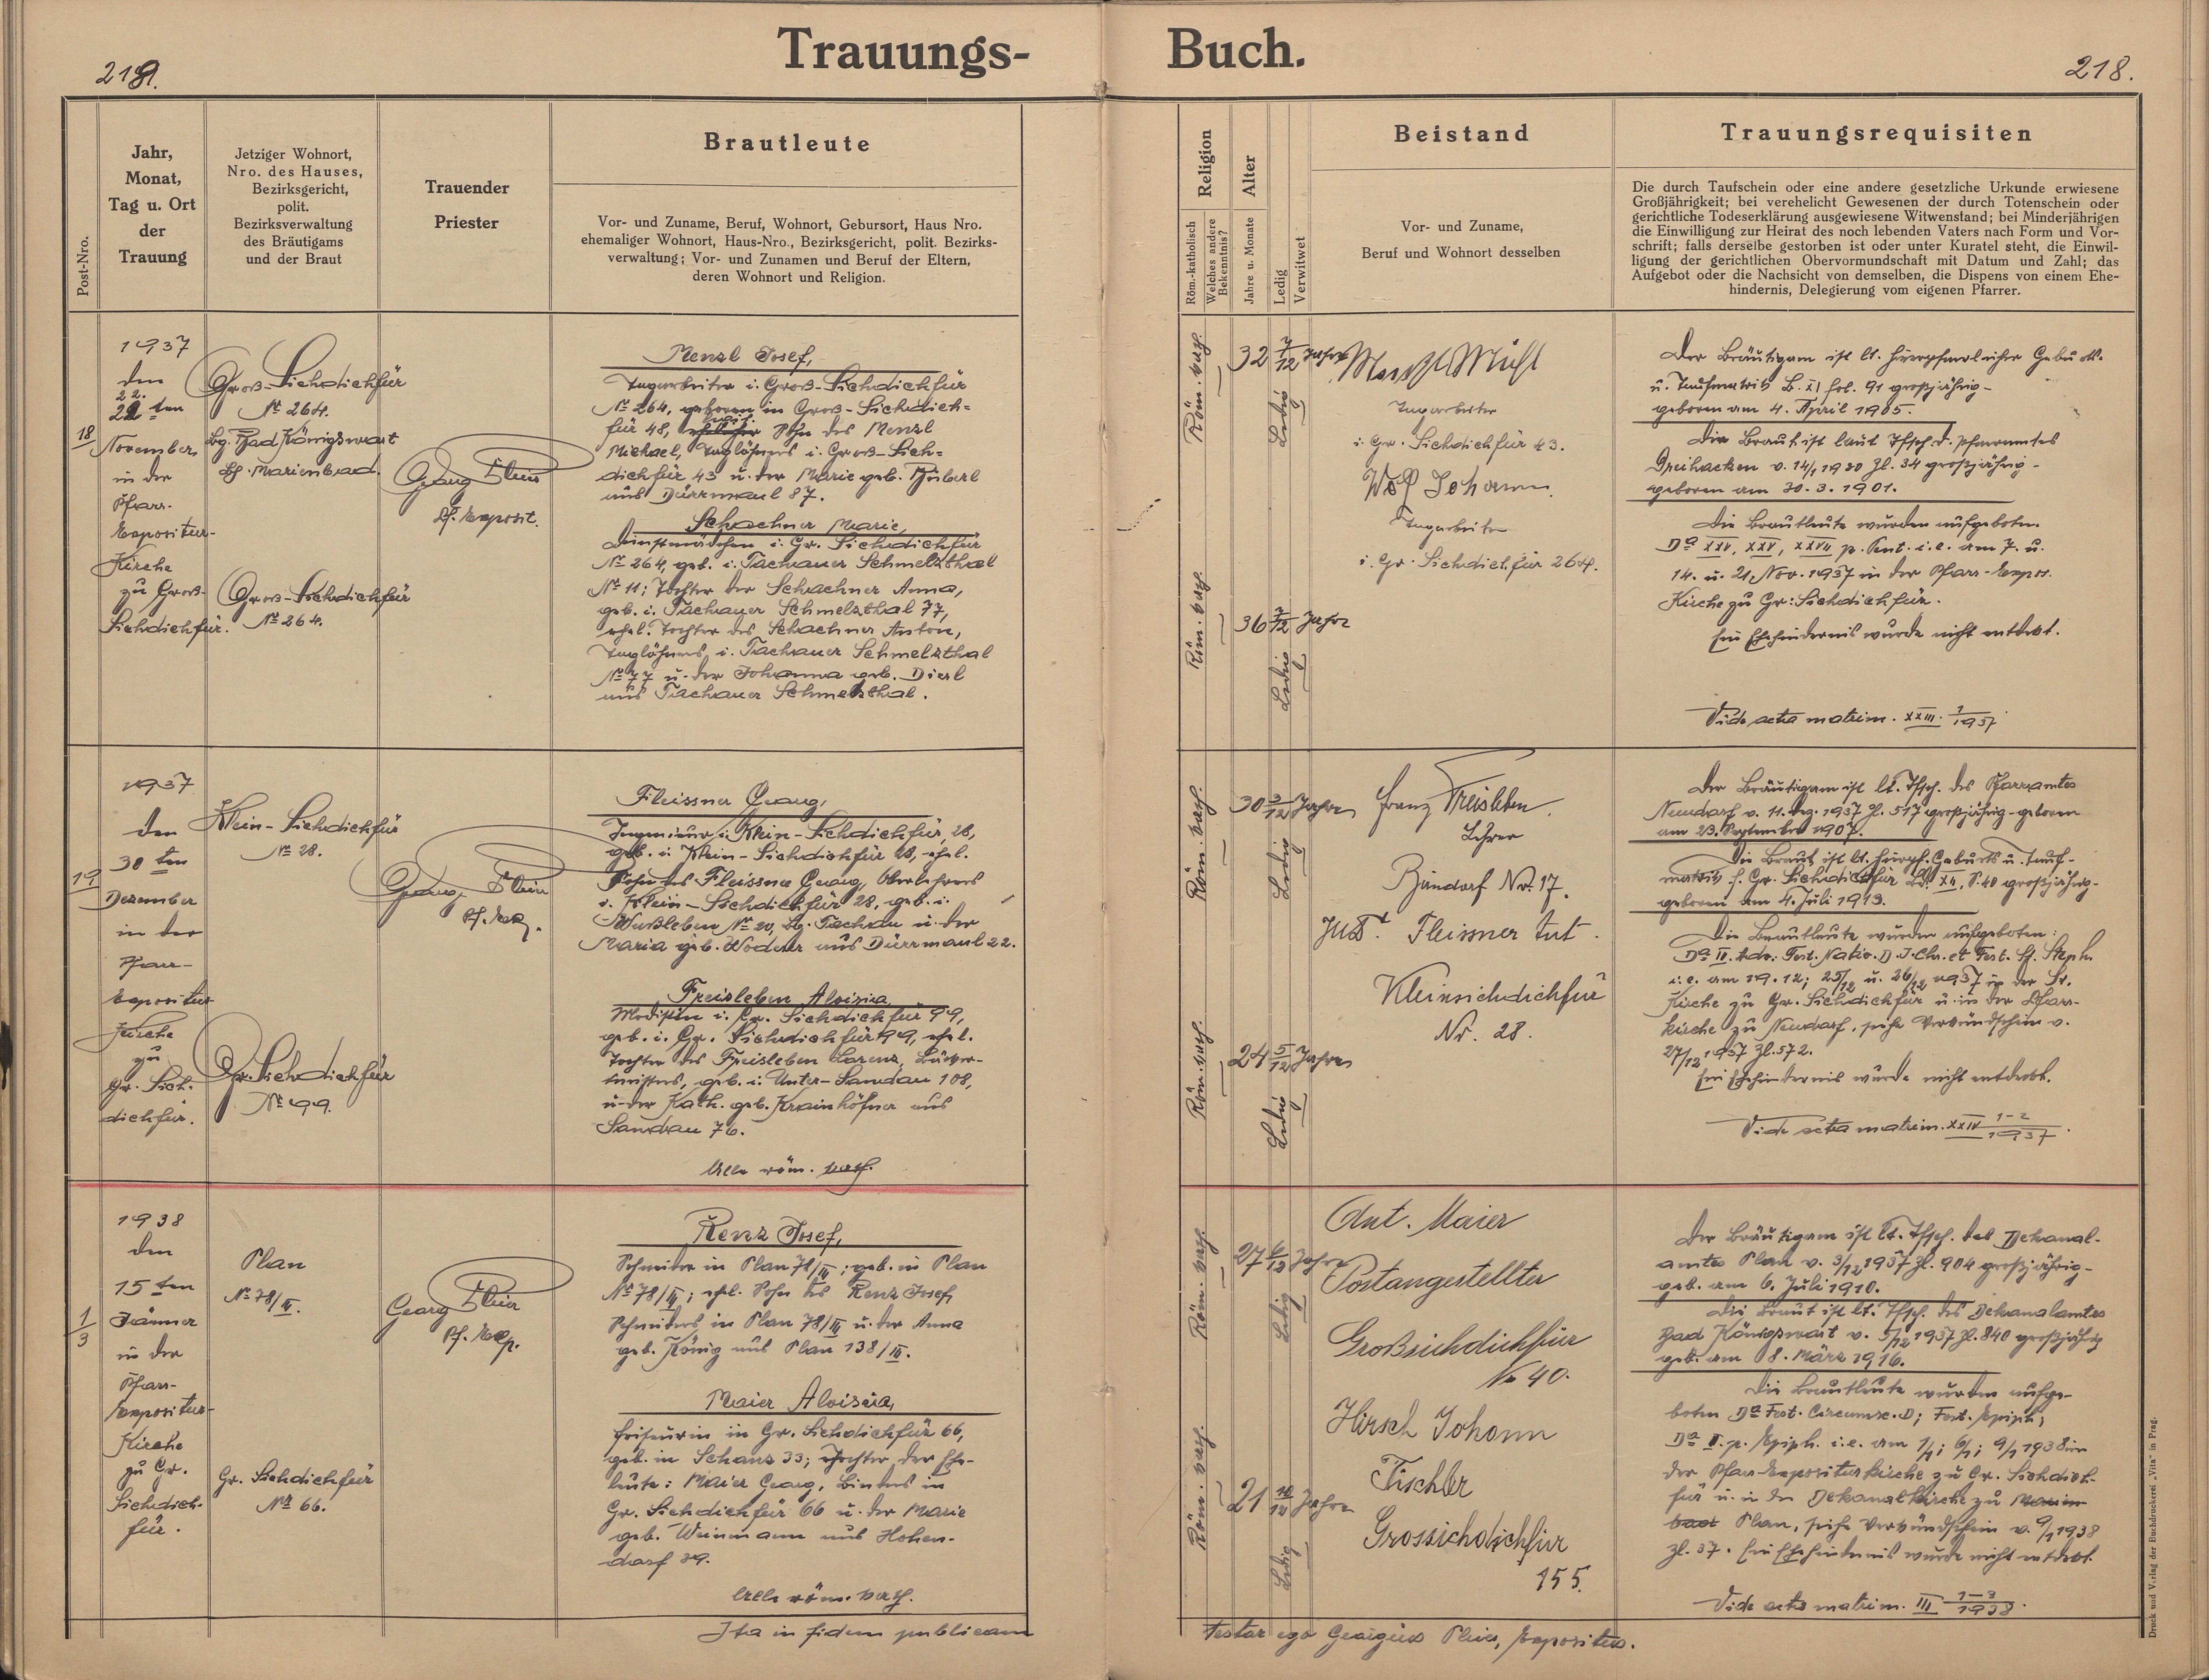 Trauungs-
218.
Post-Nro.
Jahr,
Monat,
Tag u. Ort
der
Trauung
Jetziger Wohnort,
Nro. des Hauses,
Bezirksgericht,
polit.
Bezirksverwaltung
des Bräutigams
und der Braut
Trauender
Priester
Brautleute
Vor- und Zuname, Beruf, Wohnort, Geburtsort, Haus Nro.
ehemaliger Wohnort, Haus-Nro., Bezirksgericht, polit. Bezirks-
verwaltung; Vor- und Zunamen und Beruf der Eltern,
deren Wohnort und Religion.
18
1937
den
22.
22ten
November
in der
Pfarr-
Expositur-
Kirche
zu Groß-
Sichdichfür.
Groß-Sichdichfür
№ 264.
Bg. Bad Königswart
Marienbad.
Groß-Sichdichfür
№ 264.
Georg
Pf. Exposit.
Menzl Josef,
Tagarbeiter i. Groß-Sichdichfür
№ 264, geboren in Groß-Sichdich=
für 48, Sohn des Menzl
Michael, Taglöhners i. Groß-Sich=
dichfür 43 u. der Marie geb.
aus Dürrmaul 87.
Schachner Marie,
Dienstmädchen i. Gr. Sichdichfür
№ 264, geb. i. Tachauer Schmelzthal
№ 11; Tochter der Schachner Anna,
geb. i. Tachauer Schmelzthal 77,
ehel. Tochter des Schachner Anton,
Taglöhners i. Tachauer Schmelzthal
№ 77 u. der Johanna geb. Dierl
aus Tachauer Schmelzthal.
19
1937
den
30ten
Dezember
in der
Pfarr-
Expositur
Kirche
zu
Gr. Sich-
dichfür.
Klein-Sichdichfür
№ 28.
Gr. Sichdichfür
№ 99.
Georg
Pf. Exp.
Fleissner Georg,
Ingenieur i. Klein-Sichdichfür, 28,
geb. i. Klein-Sichdichfür 28, ehel.
Sohn des Fleissner Georg, Oberlehrers
i. Klein-Sichdichfür 28, geb. i.
№ 20, Bg. Tachau u. der
Maria geb. aus Dürrmaul 22.
Freisleben Aloisia,
Modistin i. Gr. Sichdichfür 99,
geb. i. Gr. Sichdichfür 99, ehel.
Tochter des Freisleben Lorenz, Bäcker-
meisters, geb. i. Unter-Sandau 108,
u. der Kath. geb. Krainhöfner aus
Sandau 76.
Alle röm. kath.
1/3
1938
den
15ten
Jänner
in der
Pfarr-
Expositur-
Kirche
zu Gr.
Sichdich-
für.
Plan
№ 78/II.
Gr. Sichdichfür
№ 66.
Georg
Pf. Exp.
Renz Josef,
Schneider in Plan 78/II; geb. in Plan
№ 78/II; ehel. Sohn des Renz Josef,
Schneiders in Plan 78/II u. der Anna
geb. König aus Plan 138/II.
Maier Aloisia,
Friseurin in Gr. Sichdichfür 66,
geb. in Schanz 33; Tochter der Ehe-
leute: Maier Georg, Binders in
Gr. Sichdichfür 66 u. der Marie
geb. Weinmann aus Hohen-
dorf 39.
Alle röm. kath.
Ita in fidem publicam
Buch.
218.
Religion
Röm.-katholisch
Welches andere
Bekenntnis?
Alter
Jahre u. Monate
Ledig
Verwitwet
Beistand
Vor- und Zuname,
Beruf und Wohnort desselben
Trauungsrequisiten
Die durch Taufschein oder eine andere gesetzliche Urkunde erwiesene
Großjährigkeit; bei verehelicht Gewesenen der durch Totenschein oder
gerichtliche Todeserklärung ausgewiesene Witwenstand; bei Minderjährigen
die Einwilligung zur Heirat des noch lebenden Vaters nach Form und Vor-
schrift; falls derselbe gestorben ist oder unter Kuratel steht, die Einwil-
ligung der gerichtlichen Obervormundschaft mit Datum und Zahl; das
Aufgebot oder die Nachsicht von demselben, die Dispens von einem Ehe-
hindernis, Delegierung vom eigenen Pfarrer.
Röm. kath.
32 7/12 Jahre
Ledig
Röm. kath.
36 7/12 Jahre
Ledig
Tagarbeiter
i. Gr. Sichdichfür 43.
Wolf Johann
Tagarbeiter
i. Gr. Sichdichfür 264.
Der Bräutigam ist lt. hierpfarrlicher Geburts-
u. Taufmatrik B. XI fol. 91 großjährig-
geboren am 4. April 1905.
Die Braut ist laut Tfsch. d. Pfarramtes
Dreihacken v. 14/1 1930 Zl. 34 großjährig-
geboren am 30.3.1901.
Die Brautleute wurden aufgeboten
Dª XXV, XXV, XXVII p. Pent. i.e. am 7. u.
14. u. 21. Nov. 1937 in der Pfarr-Expos.
Kirche zu Gr: Sichdichfür.
Ein Ehehindernis wurde nicht entdeckt.
Vide acta matrim. XXIII. 1/1937
Röm. kath.
30 3/12 Jahre
Ledig
Röm. kath.
24 5/12 Jahre
Ledig
Franz Freisleben
Lehrer
Nr. 17.
Fleissner
Kleinsichdichfür
Nr. 28.
Der Bräutigam ist lt. Tfsch. des Pfarramtes
Neudorf v. 11. Dez. 1937 Zl. 517 großjährig-geboren
am 23. September 1907.
Die Braut ist lt. hierpf. Geburts u. Tauf-
matrik f. Gr. Sichdichfür Bd. XII, S. 40 großjährig-
geboren am 4. Juli 1913.
Die Brautleute wurden aufgeboten:
Dª IV. Adv. Fest. Nativ. D. J. Chr. et Fest. St. Steph.
i.e. am 19.12; 25/12 u. 26/12 1937 in der
Kirche zu Gr. Sichdichfür u. in der Pfarr-
kirche zu Neudorf, siehe Verkündschein v.
27/12 1937 Zl. 572.
Ein Ehehindernis wurde nicht entdeckt.
Vide acta matrim. XXIV 1-2/1937.
Röm. kath.
27 6/12 Jahre
Ledig
Röm. kath.
21 10/12 Jahre
Ledig
Ant. Maier
Postangestellter
Großsichdichfür
No 40.
Hirsch Johann
Tischler
Grossichdichfür
155.
Der Bräutigam ist lt. Tfsch. des Dekanal-
amtes Plan v. 3/12 1937 Zl. 904 großjährig-
geb. am 6. Juli 1910.
Die Braut ist lt. Tfsch. des Dekanalamtes
Bad Königswart v. 5/12 1937 Zl. 840 großjährig
geb. am 8. März 1916.
Die Brautleute wurden aufge-
boten Dª Fest. Circumc. D; Fest. Epiph;
Dª I. p. Epiph. i.e. am 1/1; 6/1; 9/1 1938 in
der Pfarr-Expositurkirche zu Gr. Sichdich-
für u. in der Dekanalkirche zu Marien-
bad Plan, siehe Verkündschein v. 9/1 1938
Zl. 37. Ein Ehehindernis wurde nicht entdeckt.
Vide acta matrim. III 1-3/1938.
testor ego Georgius, Expositus.
Druck und Verlag der Buchdruckerei „Vita" in Prag.